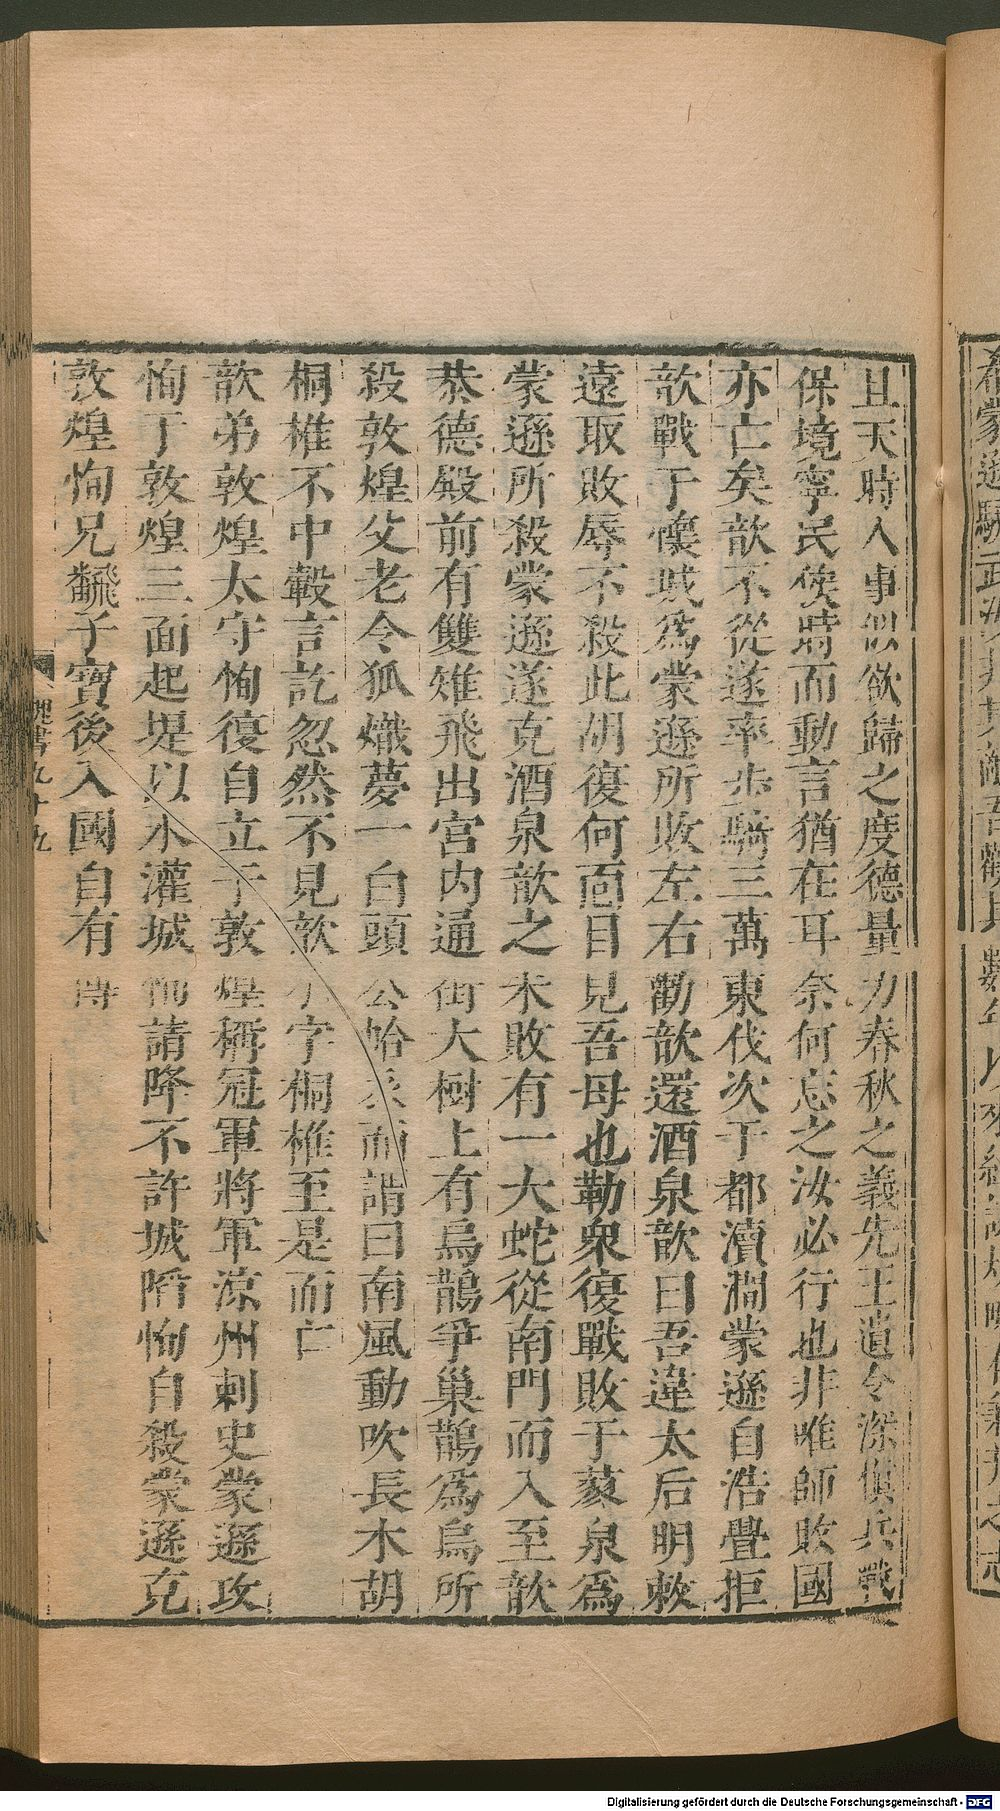 且天時人事似欲歸之度德量力春秋之義先王遺令深慎兵戰
保境寧民俟時而動言猶在耳奈何忘之汝必行也非唯師敗國
亦亡矣歆不從遂率步騎三萬東伐次于都瀆澗蒙遜自浩亹拒
歆戰于懷城爲蒙遜所敗左右勸歆還酒泉歆曰吾違太后明敕
遠取敗辱不殺此胡復何面目見吾母也勒衆復戰敗于蓼泉爲
蒙遜所殺蒙遜遂克酒泉歆之未敗有一大蛇從南門而入至歆
恭德殿前有雙雉飛出宮內通街大樹上有烏鵲爭巢鵲爲烏所
殺敦煌父老令狐熾夢一白頭公帢衣而謂曰南風動吹長木胡
桐椎不中轂言訖忽然不見歆小字桐椎至是而亡
歆弟敦煌太守恂復自立于敦煌稱冠軍將軍涼州刺史蒙遜攻
恂于敦煌三面起堤以水灌城恂請降不許城陷恂自殺蒙遜克
敦煌恂兄翻子寶後入國自有傳
魏書九十九
八
Digitalisierung gefördert durch die Deutsche Forschungsgemeinschaft - DFG